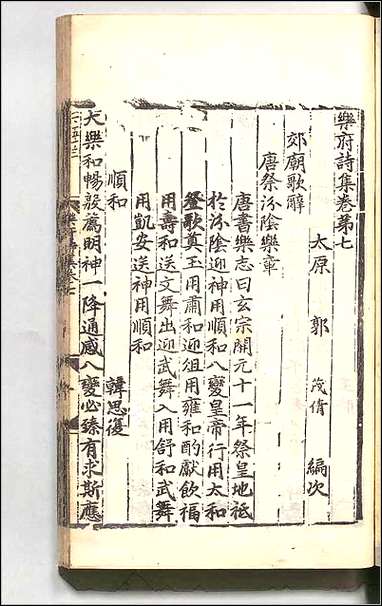 樂府詩集卷第七
太原 郭 茂倩 編次
郊廟歌辭
唐祭汾陰樂章
唐書樂志曰玄宗開元十一年祭皇地祇
於汾陰迎神用順和八變皇帝行用太和
登歌奠玉用肅和迎俎用雍和酌獻飲福
用壽和送文舞出迎武舞入用舒和武舞
用凱安送神用順和
順和 韓思復
大樂和暢殷薦明神一降通感八變必臻有求斯應